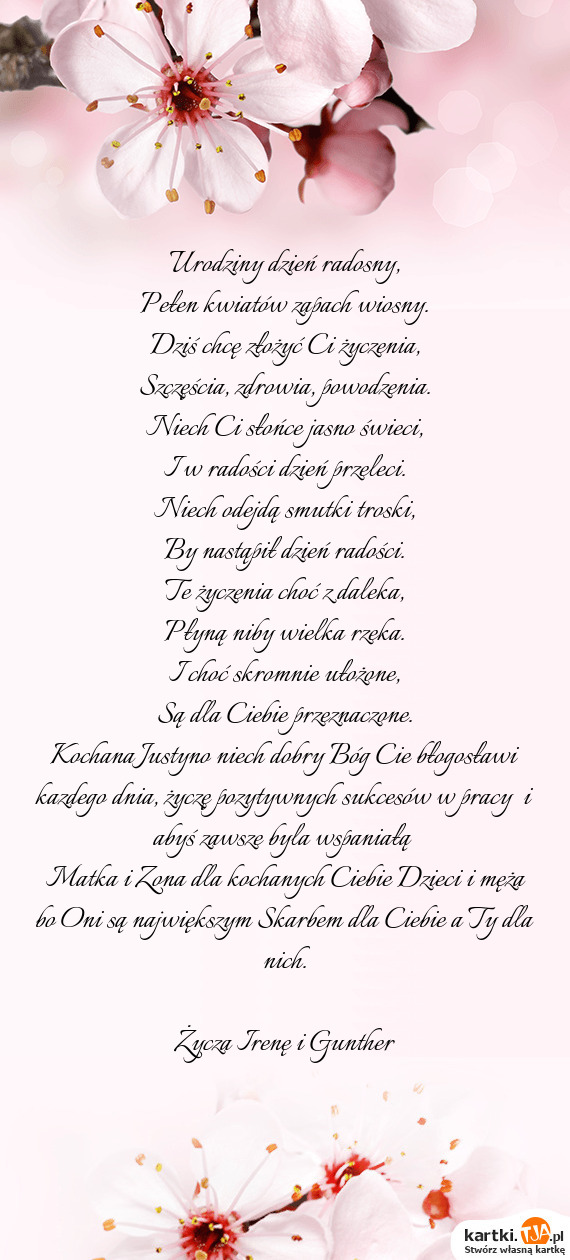 Urodziny dzień radosny,
Pełen kwiatów zapach wiosny.
Dziś chcę złożyć Ci życzenia,
Szczęścia, zdrowia, powodzenia.
Niech Ci słońce jasno świeci,
I w radości dzień przeleci.
Niech odejdą smutki troski,
By nastąpił dzień radości.
Te życzenia choć z daleka,
Płyną niby wielka rzeka.
I choć skromnie ułożone,
Są dla Ciebie przeznaczone.
Kochana Justyno niech dobry Bóg Cie błogosławi
kazdego dnia, życzę pozytywnych sukcesów w pracy i
abyś zawsze byla wspaniałą
Matka i Zona dla kochanych Ciebie Dzieci i męża
bo Oni są największym Skarbem dla Ciebie a Ty dla
nich.
Życza Irenę i Gunther
kartki.TJA.pl
Stwórz własną kartkę